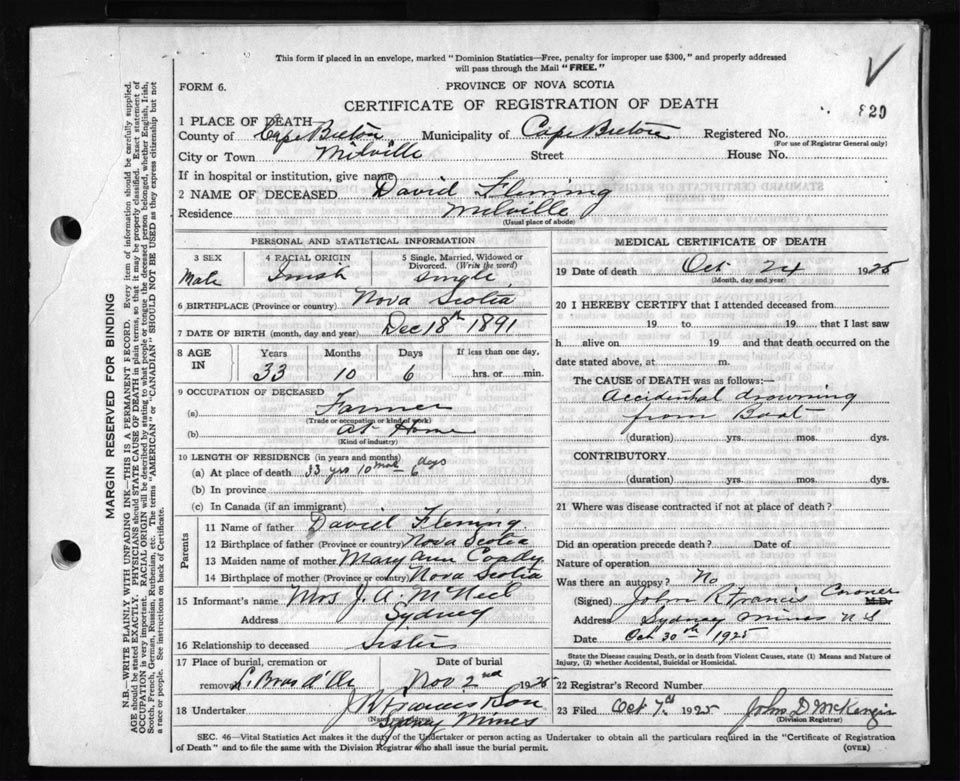 This form if placed in an envelope, marked "Dominion Statistics—Free, penalty for improper use $300," and properly addressed
will pass through the Mail "FREE."
FORM 6.
PROVINCE OF NOVA SCOTIA
CERTIFICATE OF REGISTRATION OF DEATH
829
1 PLACE OF DEATH
County of Cape Breton Municipality of Cape Breton Registered No.
(For use of Registrar General only)
City or Town Milville Street House No.
If in hospital or institution, give name
2 NAME OF DECEASED David Fleming
Residence Milville
(Usual place of abode)
PERSONAL AND STATISTICAL INFORMATION
3 SEX 4 RACIAL ORIGIN 5 Single, Married, Widowed or Divorced. (Write the word)
Male Irish Single
6 BIRTHPLACE (Province or country) Nova Scotia
7 DATE OF BIRTH (month, day and year) Dec 18th 1891
8 AGE IN Years Months Days If less than one day,
33 10 6 hrs. or min.
9 OCCUPATION OF DECEASED
(a) Farmer
(Trade or occupation or kind of work)
(b) At Home
(Kind of industry)
10 LENGTH OF RESIDENCE (in years and months)
(a) At place of death 33 yrs 10 mos 6 days
(b) In province
(c) In Canada (if an immigrant)
Parents
11 Name of father David Fleming
12 Birthplace of father (Province or country) Nova Scotia
13 Maiden name of mother Mary Ann Coady
14 Birthplace of mother (Province or country) Nova Scotia
15 Informant's name Mrs J. A. McNeil
Address Sydney
16 Relationship to deceased Sister
17 Place of burial, cremation or Date of burial
removal L. Bras d'Or Nov 2nd 1925
18 Undertaker J R Francis Son
(Name and address)
Sydney Mines
MEDICAL CERTIFICATE OF DEATH
19 Date of death Oct 24 1925
(Month, day and year)
20 I HEREBY CERTIFY that I attended deceased from
19 to 19, that I last saw
h alive on 19 and that death occurred on the
date stated above, at m.
The CAUSE OF DEATH was as follows:—
Accidental drowning
from Boat
(duration) yrs. mos. dys.
CONTRIBUTORY.
(duration) yrs. mos. dys.
21 Where was disease contracted if not at place of death?
Did an operation precede death? Date of
Nature of operation
Was there an autopsy? No
(Signed) John R Francis Coroner M.D.
Address Sydney Mines N S
Date Oct 30th 1925
State the Disease causing Death, or in death from Violent Causes, state (1) Means and Nature of
Injury, (2) whether Accidental, Suicidal or Homicidal.
22 Registrar's Record Number
23 Filed Oct 1925 John D McKenzie
(Division Registrar)
SEC. 46—Vital Statistics Act makes it the duty of the Undertaker or person acting as Undertaker to obtain all the particulars required in the "Certificate of Registration
of Death" and to file the same with the Division Registrar who shall issue the burial permit. (OVER)
MARGIN RESERVED FOR BINDING
N.B.—WRITE PLAINLY WITH UNFADING INK—THIS IS A PERMANENT RECORD. Every item of information should be carefully supplied.
AGE should be stated EXACTLY. PHYSICIANS should STATE CAUSE OF DEATH in plain terms, so that it may be properly classified. Exact statement of
OCCUPATION is very important. RACIAL ORIGIN will be described by stating to what people or tongue the deceased person belonged, whether English, Irish,
Scotch, French, German, Russian, Ruthenian, etc. The terms "AMERICAN" or "CANADIAN" SHOULD NOT BE USED as they express citizenship but not
a race or people. See instructions on back of Certificate.